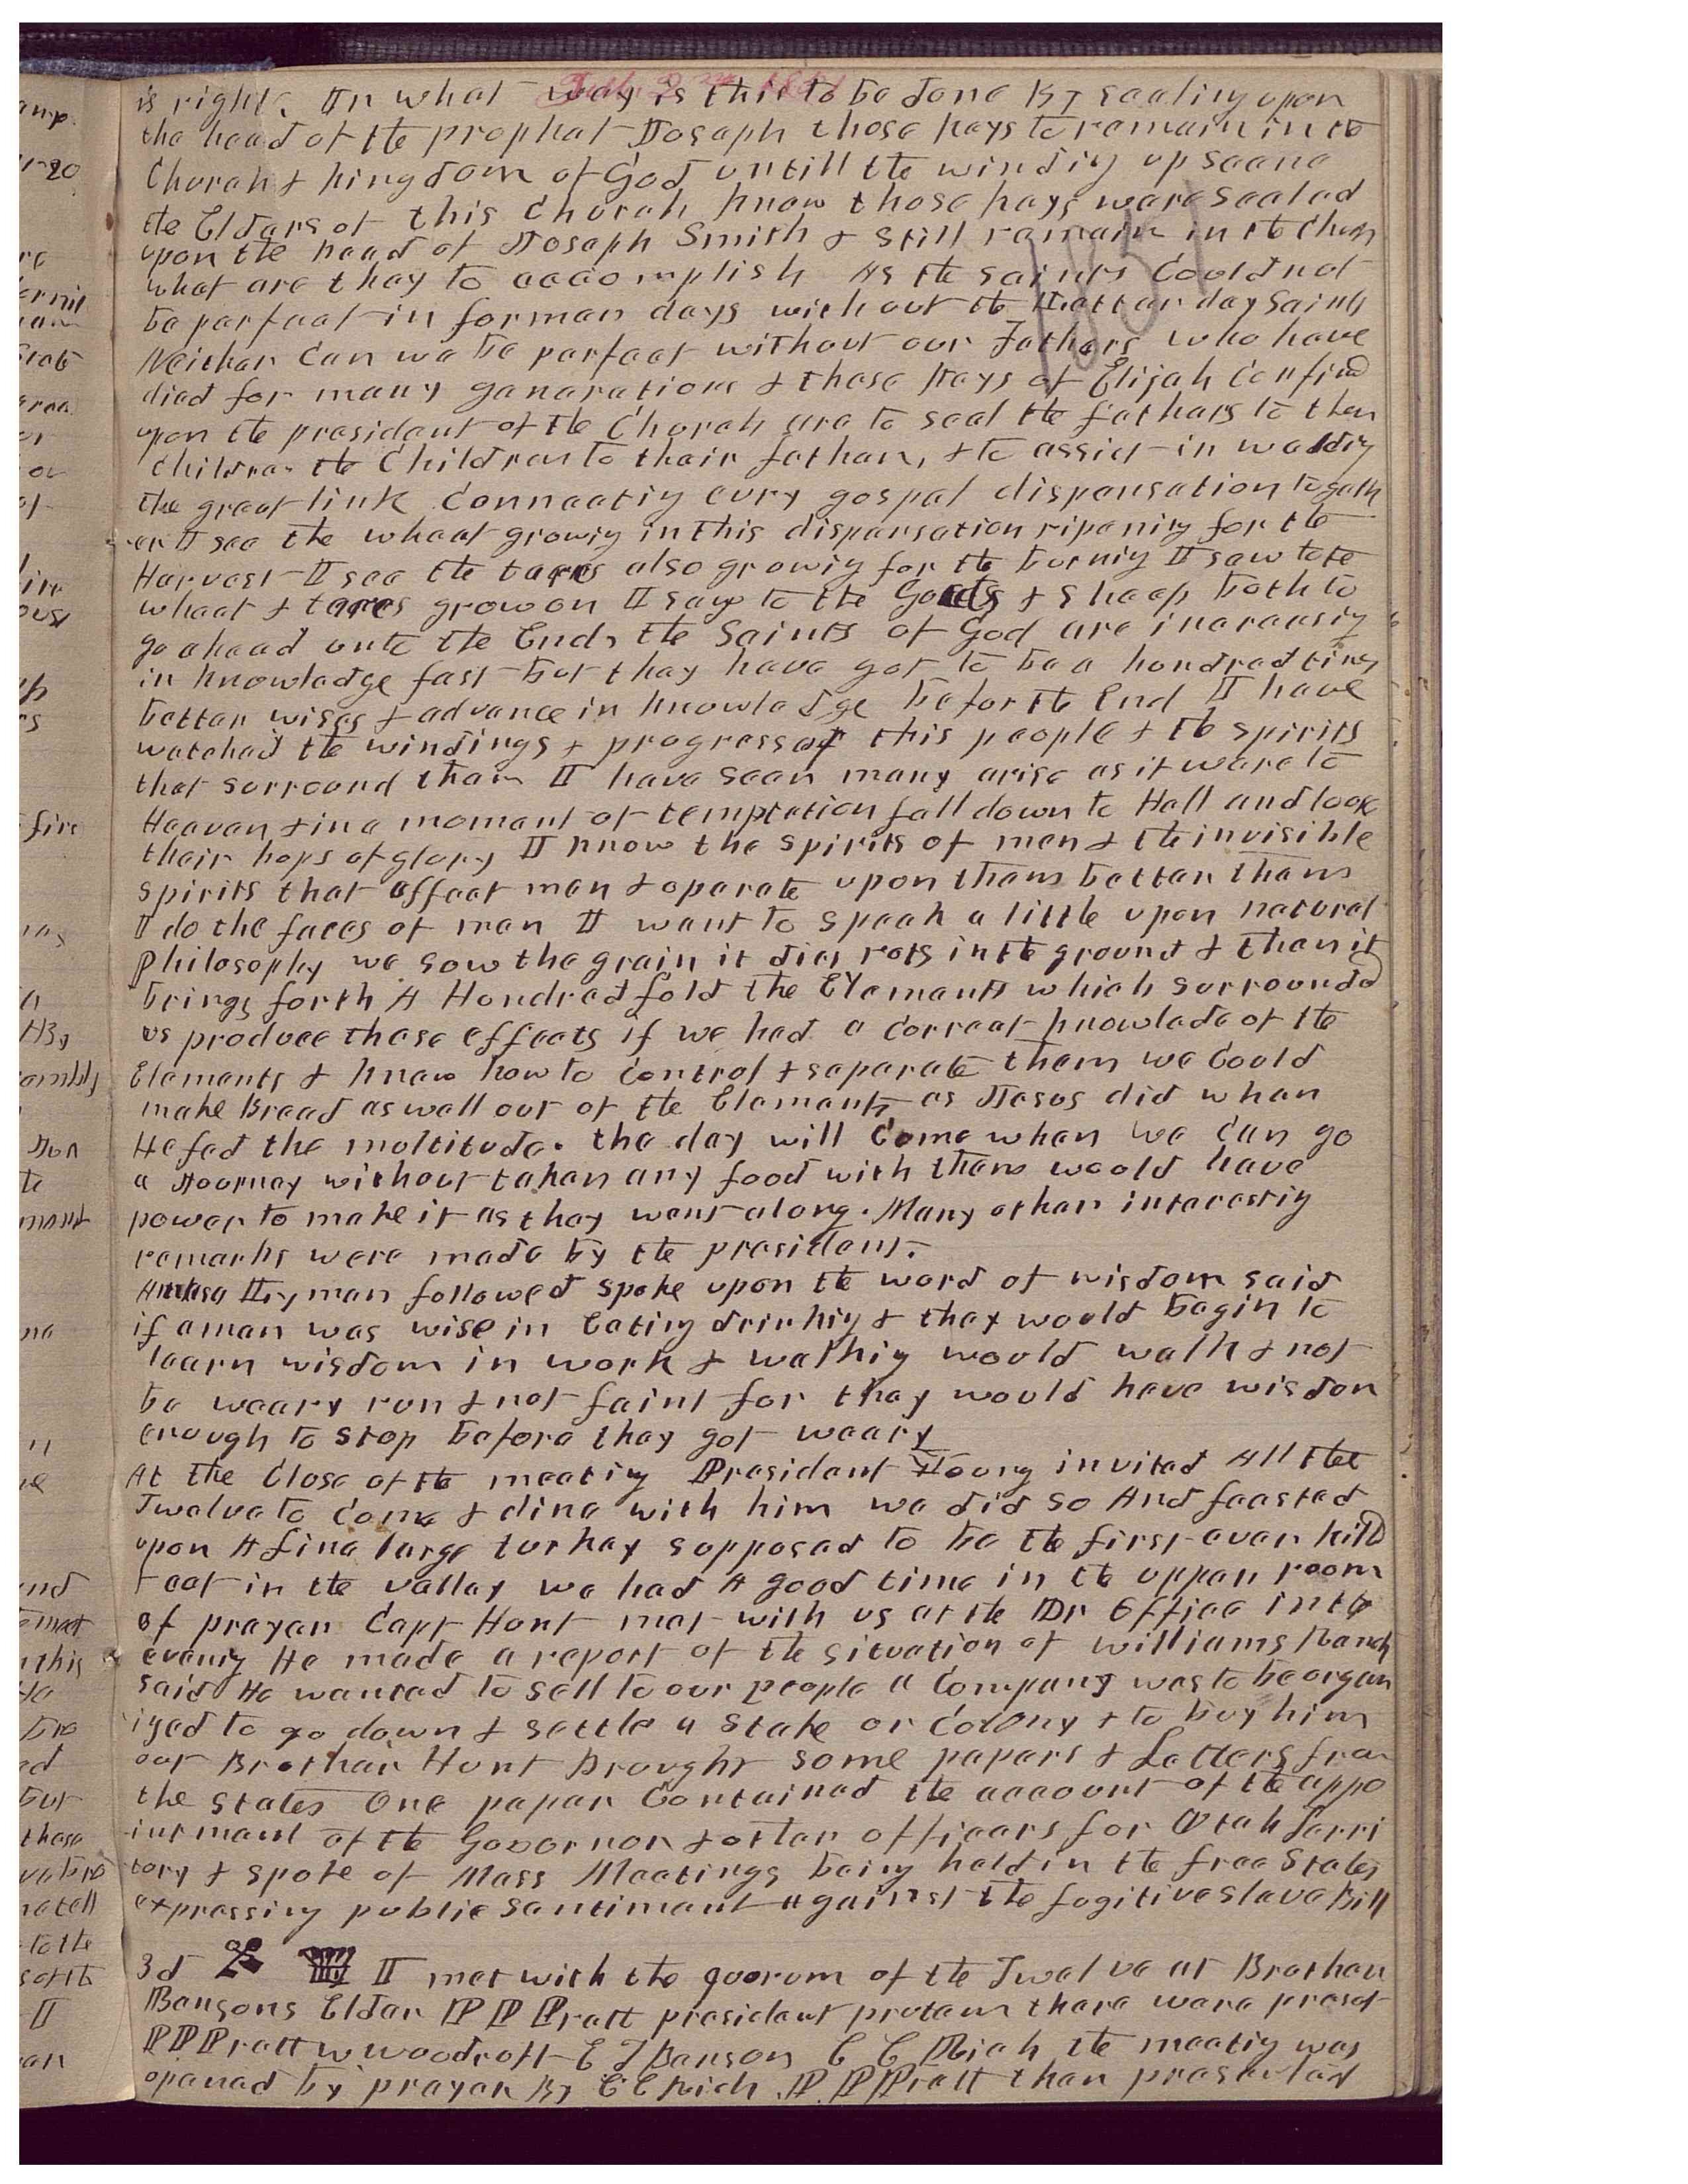 is right. In what way is this to be done By sealing upon
the head of the prophet Joseph those keys to remain in the
Church & kingdom of God untill the winding up scene
the Elders of this Church know those keys were sealed
upon the head of Joseph Smith & still remain in the Church
what are they to accomplish As the saints Could not
be perfect in former days without the Latter day Saints
Neither Can we be perfect without our Fathers who have
died for many generations & those keys of Elijah Confired
upon the president of the Church are to seal the fathers to then
Children the Children to their fathers, & to assist in welding
the great link Connecting evry gospel dispensation togeth
er I see the wheat growing in this dispensation ripening for the
Harvest I see the tares also growing for the burning I saw to te
wheat & tares grow on I say to the Goats & sheep both to
go ahead unto the End, the Saints of God are increasing
in knowledge fast but they have got to be a hundred times
better wiser & advance in knowledge before the End I have
watched the windings & progress of this people & the spirits
that surround them I have seen many arise as it were to
Heaven & in a moment of temptation fall down to Hell and loose
their hops of glory I know the spirits of men & the invisible
spirits that affect men & operate upon them better than
I do the faces of men I want to speak a little upon natural
Philosophy we sow the grain it dies rots in the ground & then it
brings forth A Hundred fold the Elements which surrounded
us produce those effects if we had a Correct knowlede of the
Elements & knew how to Control & separate them we Could
make Bread as well out of the Elements as Jesus did when
He fed the multitude. the day will Come when we Can go
a Journey without taken any food with them would have
power to make it as they went along. Many other interesting
remarks were made by the president.
Amasa Lyman followed spoke upon the word of wisdom said
if a man was wise in Eating drinking & they would begin to
learn wisdom in work & walking would walk & not
be weary run & not faint for they would have wisdom
enough to stop before they got weary
At the Close of the meeting President Young invited All the
Twelve to Come & dine with him we did so And feasted
upon A fine large turkey supposed to be the first ever killd
& eat in the valley we had A good time in the upper room
of prayer Capt Hunt met with us at the Dr Office in the
evening He made a report of the situation of Williams Ranch
said He wanted to sell to our people a Company was to be organ
ized to go down & settle a Stake or Colony & to buy him
out Brother Hunt Brought some papers & Letters from
the States One paper Contained the account of the appo
intment of the Governor & other officers for Utah Terri
tory & spoke of Mass Meetings being held in the free States
expressing public sentiment against the fugitive slave Bill
3d I met with the quorum of the Twelve at Brother
Bensons Elder P P Pratt president protem there were preset
P P Pratt W Woodruff E T Benson C C Rich the meeting was
opened by prayer By C C Rich. P P Pratt then presented